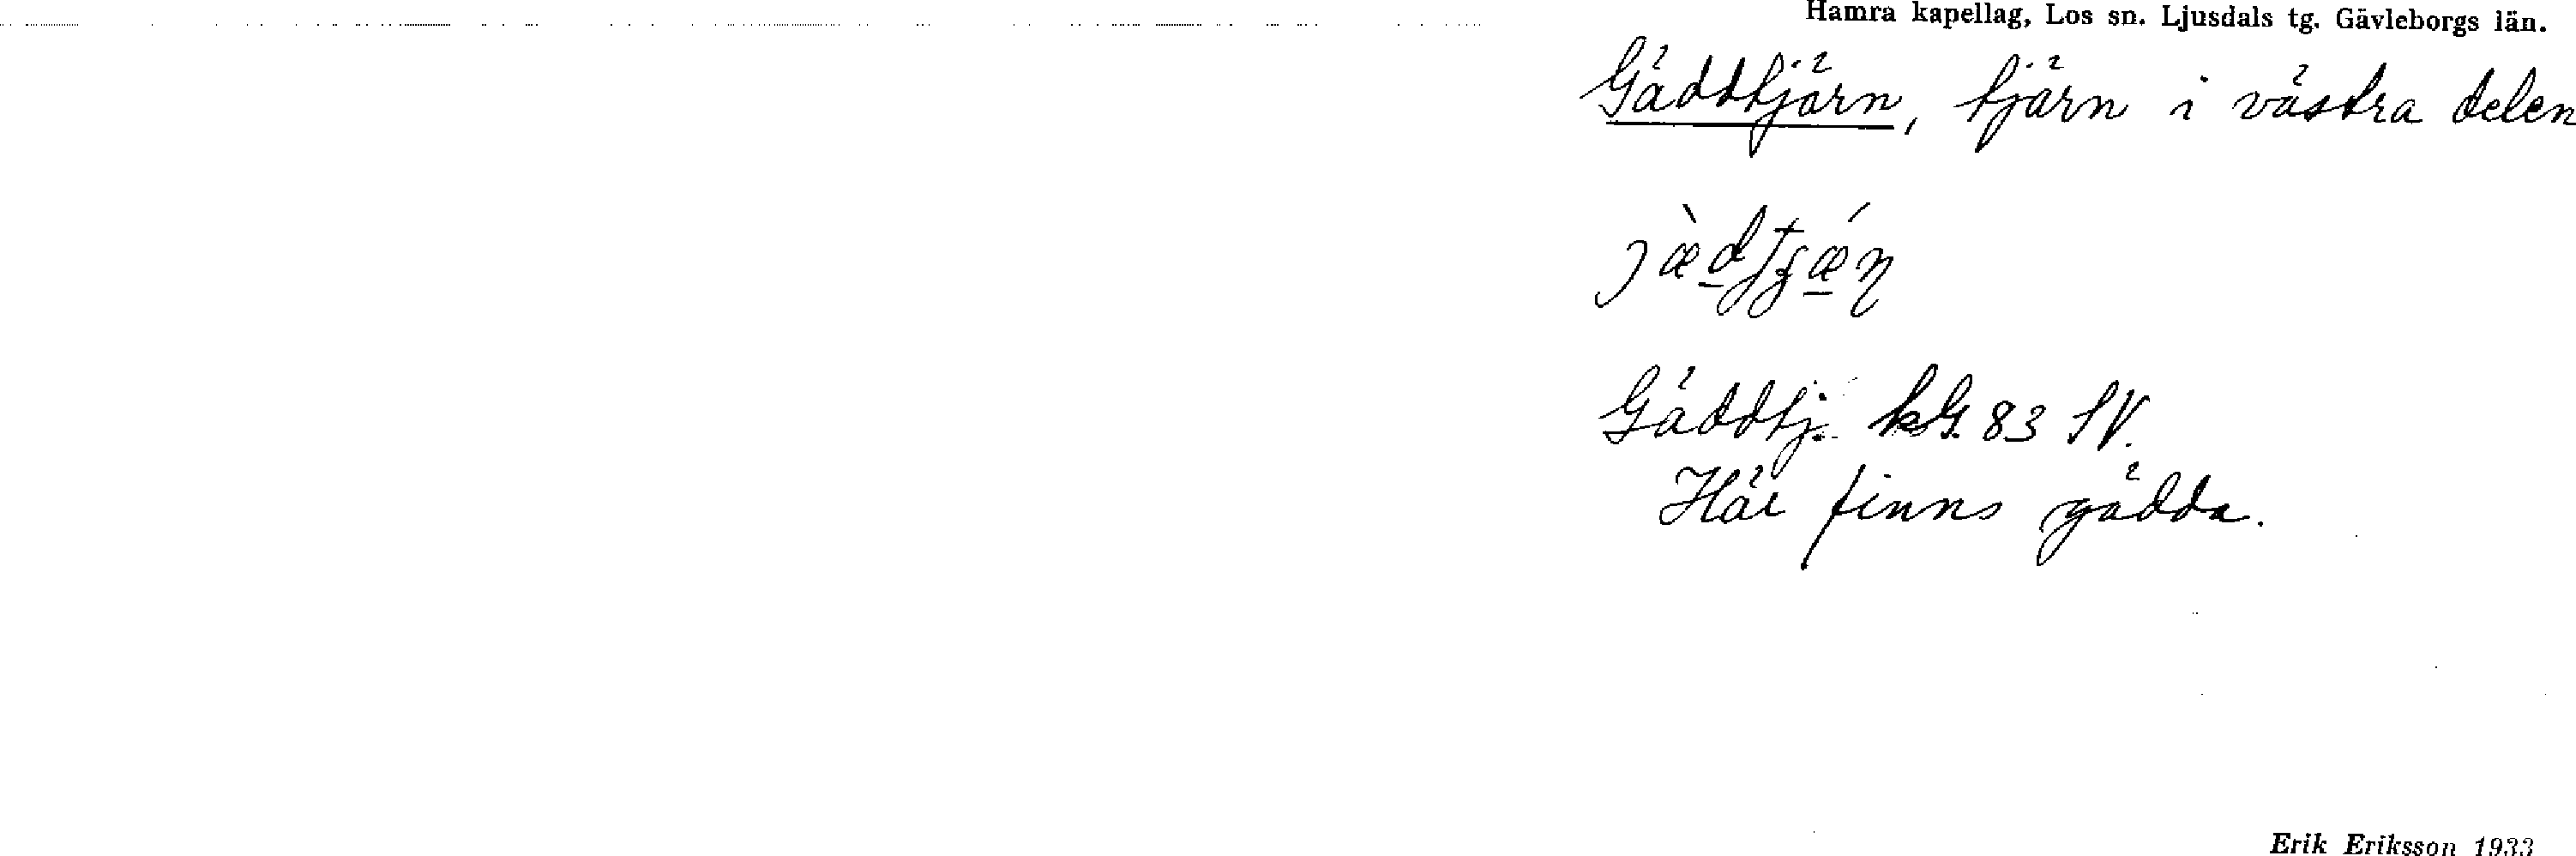 Hamra kapellag, Los sn. Ljusdals tg. Gävleborgs län.
Gäddtjärn, tjärn i västra delen
Gäddtj. kG. 83 SV.
Här finns gädda.
Erik Eriksson 1933